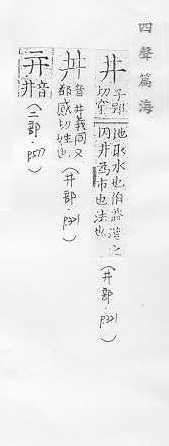 四聲篇海
井 子郢切穿地取水也伯益造之因井爲市也法也
(井部.p321)
丼 音井義同又都感切姓也
(井部.p321)
音井
(二部.p577)